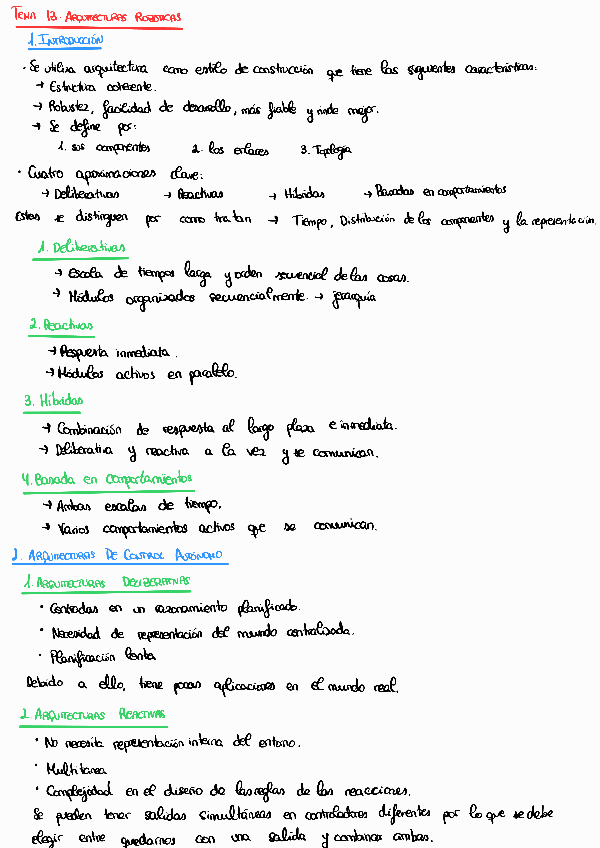 TEMA 13. ARQUITECTURAS ROBÓTICAS
1. INTRODUCCIÓN
· Se utiliza arquitectura como estilo de construcción que tiene las siguientes características:
→ Estructura coherente.
→ Robustez, facilidad de desarrollo, más fiable y rinde mejor.
→ Se define por:
1. sus componentes 2. los enlaces 3. Topología
· Cuatro aproximaciones clave:
→ Deliberativas → Reactivas → Híbridas → Basadas en comportamientos
Estas se distinguen por como tratan → Tiempo, Distribución de los componentes y la representación.
1. Deliberativas
→ Escala de tiempos larga y orden secuencial de las cosas.
→ Módulos organizados secuencialmente. → jerarquía
2. Reactivas
→ Respuesta inmediata.
→ Módulos activos en paralelo.
3. Híbridas
→ Combinación de respuesta al largo plazo e inmediata.
→ Deliberativa y reactiva a la vez y se comunican.
4. Basada en comportamientos
→ Ambas escalas de tiempo.
→ Varios comportamientos activos que se comunican.
2. ARQUITECTURAS DE CONTROL AUTÓNOMO
1. ARQUITECTURAS DELIBERATIVAS
· Centradas en un razonamiento planificado.
· Necesidad de representación del mundo centralizada.
· Planificación lenta
Debido a ello, tiene pocas aplicaciones en el mundo real.
2 ARQUITECTURAS REACTIVAS
· No necesita representación interna del entorno.
· Multitarea
· Complejidad en el diseño de las reglas de las reacciones.
Se pueden tener salidas simultáneas en controladores diferentes por lo que se debe
elegir entre quedarnos con una salida y combinar ambas.